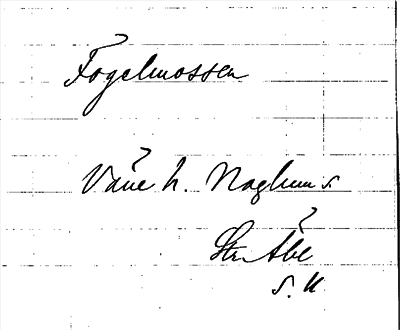 Fogelmossen
Väne h. Naglum s
Str Åbe
S. U.